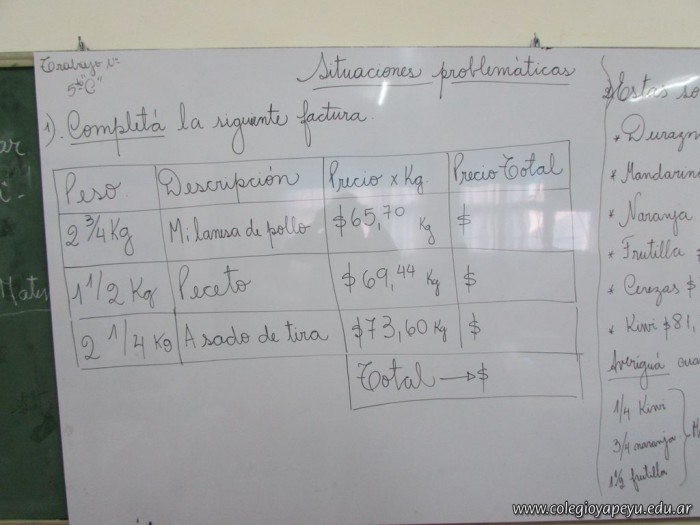 Trabajo
5to "C"
Situaciones problemáticas
1). Completá la siguiente factura.
Peso. Descripción Precio x Kg. Precio Total
2 3/4 Kg Milanesa de pollo $65,70 Kg $
1 1/2 Kg Peceto $69,44 Kg $
2 1/4 Kg Asado de tira $73,60 Kg $
Total → $
Estas so
* Durazn
* Mandarin
* Naranja
* Frutilla
* Cerezas $
* Kiwi $81,
Averiguá cua
1/4 Kiwi
3/4 naranja
1 1/2 frutilla
ar
Mate
www.colegioyapeyu.edu.ar